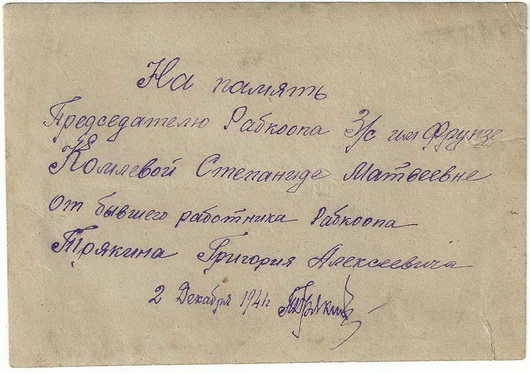 На память
Председателю Рабкоопа З/с им Фрунзе
Комлевой Степаниде Матвеевне
От бывшего работника Рабкоопа
Трякина Григория Алексеевича
2 Декабря 1941г Трякин